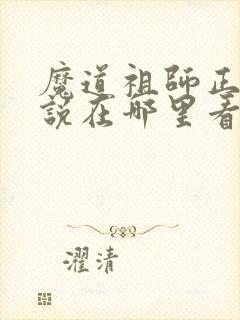 魔道祖师正
說在哪里看
濯清